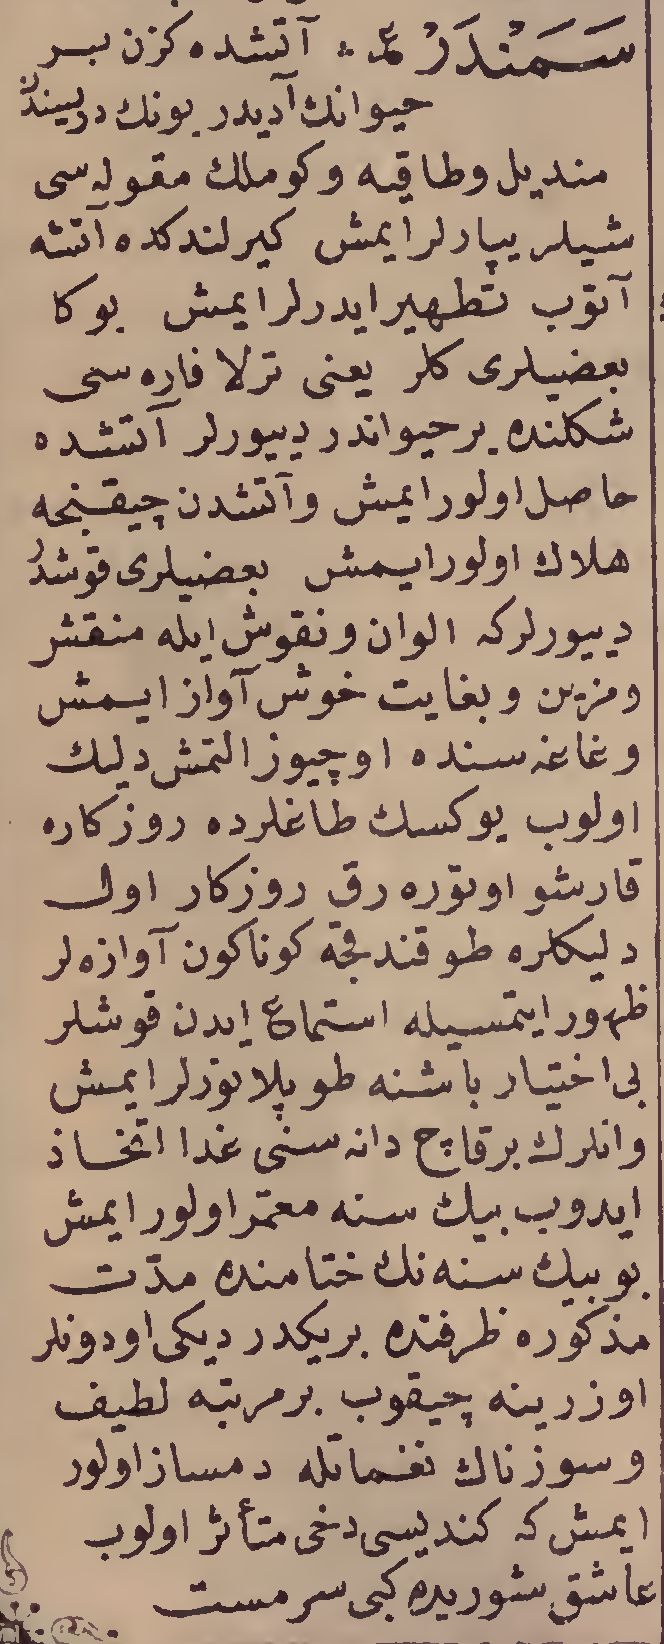 سَمَنْدَرْ ع ؞ آتشده كزن بـر
حيوانك آديدر بونك دريسيندن
منديل وطاقيه وكوملك مقوله سى
شيلر يپارلر ايمش كيرلندكده آتشه
آتوب تطهير ايدرلر ايمش بوكا
بعضيلرى كلر يعنى ترلا فاره سى
شكلنده بر حيواندر ديييورلر آتشده
حاصل اولور ايمش وآتشدن چيقنجه
هلاك اولور ايمش بعضيلرى قوشدر
ديييورلركه الوان ونقوش ايله منقش
ومزين وبغايت خوش آواز ايمش
وغاغه سنده اوچيوز التمش دليك
اولوب يوكسك طاغلرده روزكاره
قارشو اوتوره رق روزكار اول
دليكلره طوقندقجه كوناكون آوازه لر
ظهور ايتمسيله استماع ايدن قوشلر
بى اختيار باشنه طوپلانورلر ايمش
وانلرك برقاچ دانه سنى غدا اتخاذ
ايدوب بيك سنه معمّر اولور ايمش
بو بيك سنه نك ختامنده مدّت
مذكوره ظرفنده بريكدرديكى اودونلر
اوزرينه چيقوب بر مرتبه لطيف
وسوزناك نغماتله دمساز اولور
ايمش كه كنديسى دخى متأثر اولوب
عاشق شوريده كبى سرمست